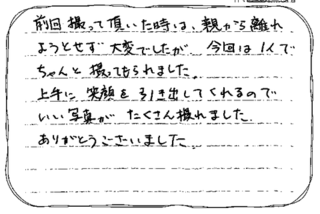 前回撮って頂いた時は、親から離れ
ようとせず大変でしたが、今回は1人で
ちゃんと撮ってもらえました。
上手に笑顔を引き出してくれるので
いい写真がたくさん撮れました。
ありがとうございました。